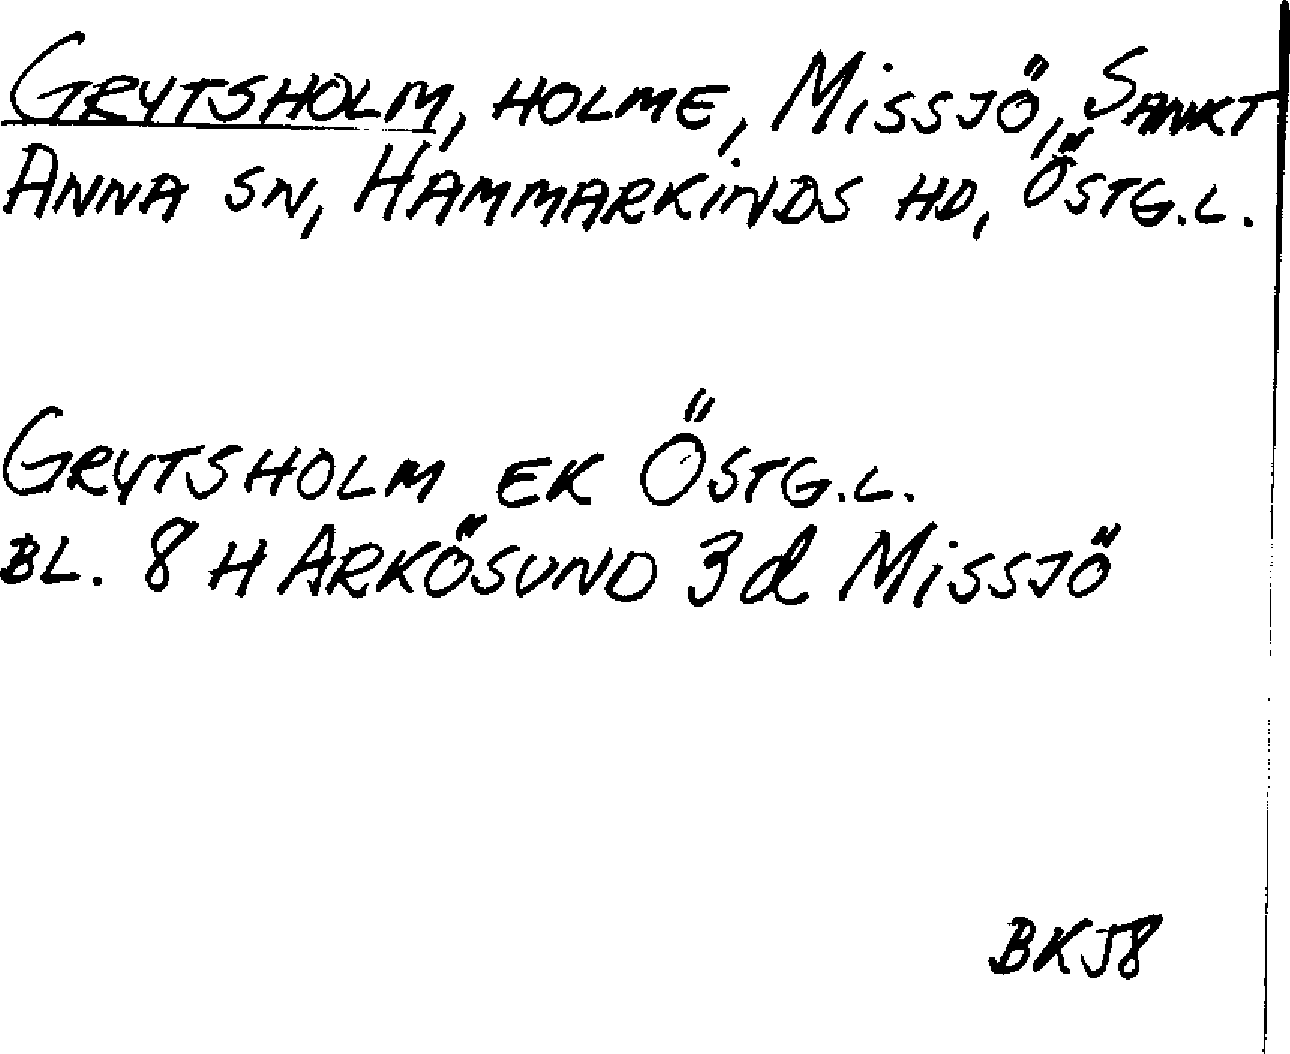 GRYTSHOLM, HOLME, MISSJÖ, SANKT
ANNA SN, HAMMARKINDS HD, ÖSTG.L.
GRYTSHOLM EK ÖSTG.L.
BL. 8 H ARKÖSUND 3 d MISSJÖ
BKJ8